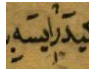 كيدر ايسه